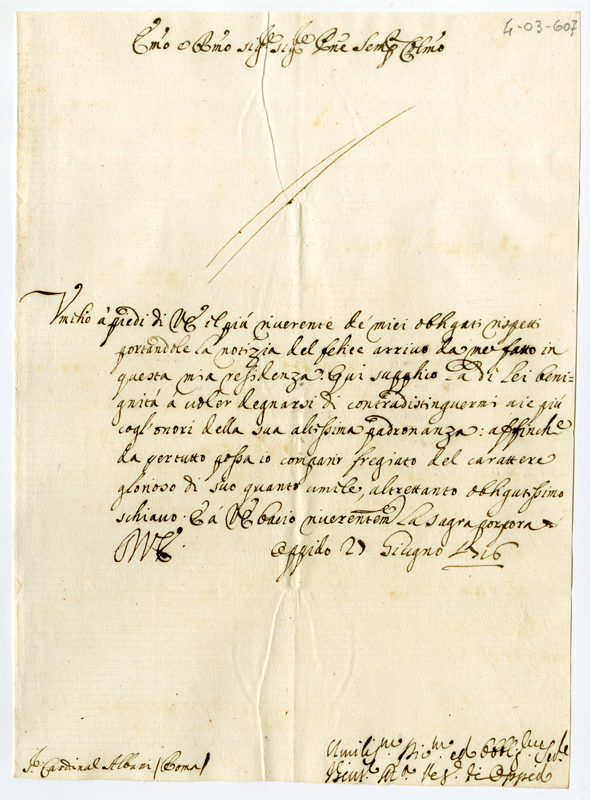 4-03-607
Emo e Rmo sig.re sig.re Pne Semp Colmo
Umilio a piedi di VE il piú riverente de miei obligati rispetti
portandole la notizia del felice arrivo da me fatto in
questa mia residenza. Qui supplico la di lei beni=
gnitá a voler degnarsi di contradistinguermi vie piú
cogl'onori della sua altissima padronanza: affinche
da pertutto possa io comparir fregiato del carattere
glorioso di suo quanto umile, altrettanto obligatissimo
schiavo. E á VE bacio riverentem.e la sagra porpora
DVE. Oppido 27 Giugno 1716
Sr. Cardinal Albani (Roma)
Umilis.mo Div.mo ed Obblig.mo
di Oppido